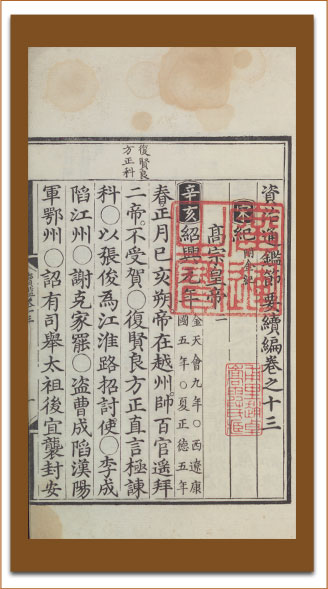 資治通鑑節要續編卷之十三
宋紀
高宗皇帝一
辛亥紹興元年
金天會九年○西遼康
國五年○夏正德五年
春正月己亥朔帝在越州帥百官遥拜
二帝不受賀○復賢良方正直言極諫
科○以張俊為江淮路招討使○李成
陷江州○謝克家罷○盜曹成陷漢陽
軍鄂州○詔有司舉太祖後宜襲封安
復賢良
方正科